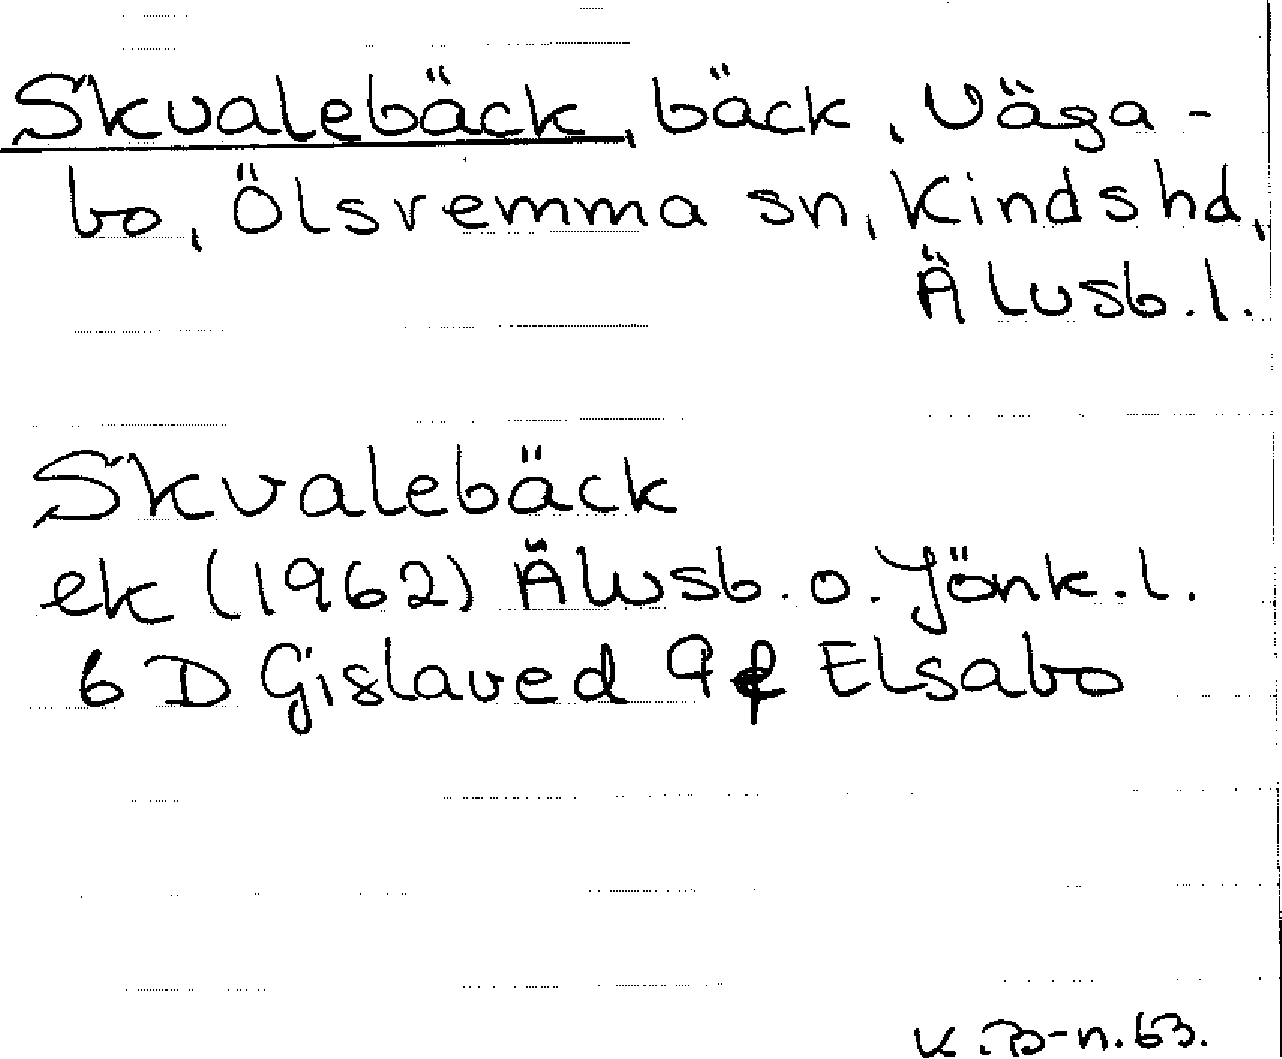 Skvalebäck, bäck, Väga-
bo, Ölsremma sn, Kinds hd,
Älvsb. l.
Skvalebäck
ek (1962) Älvsb. o. Jönk. l.
6 D Gislaved 9 f Elsabo
K. B-n. 63.